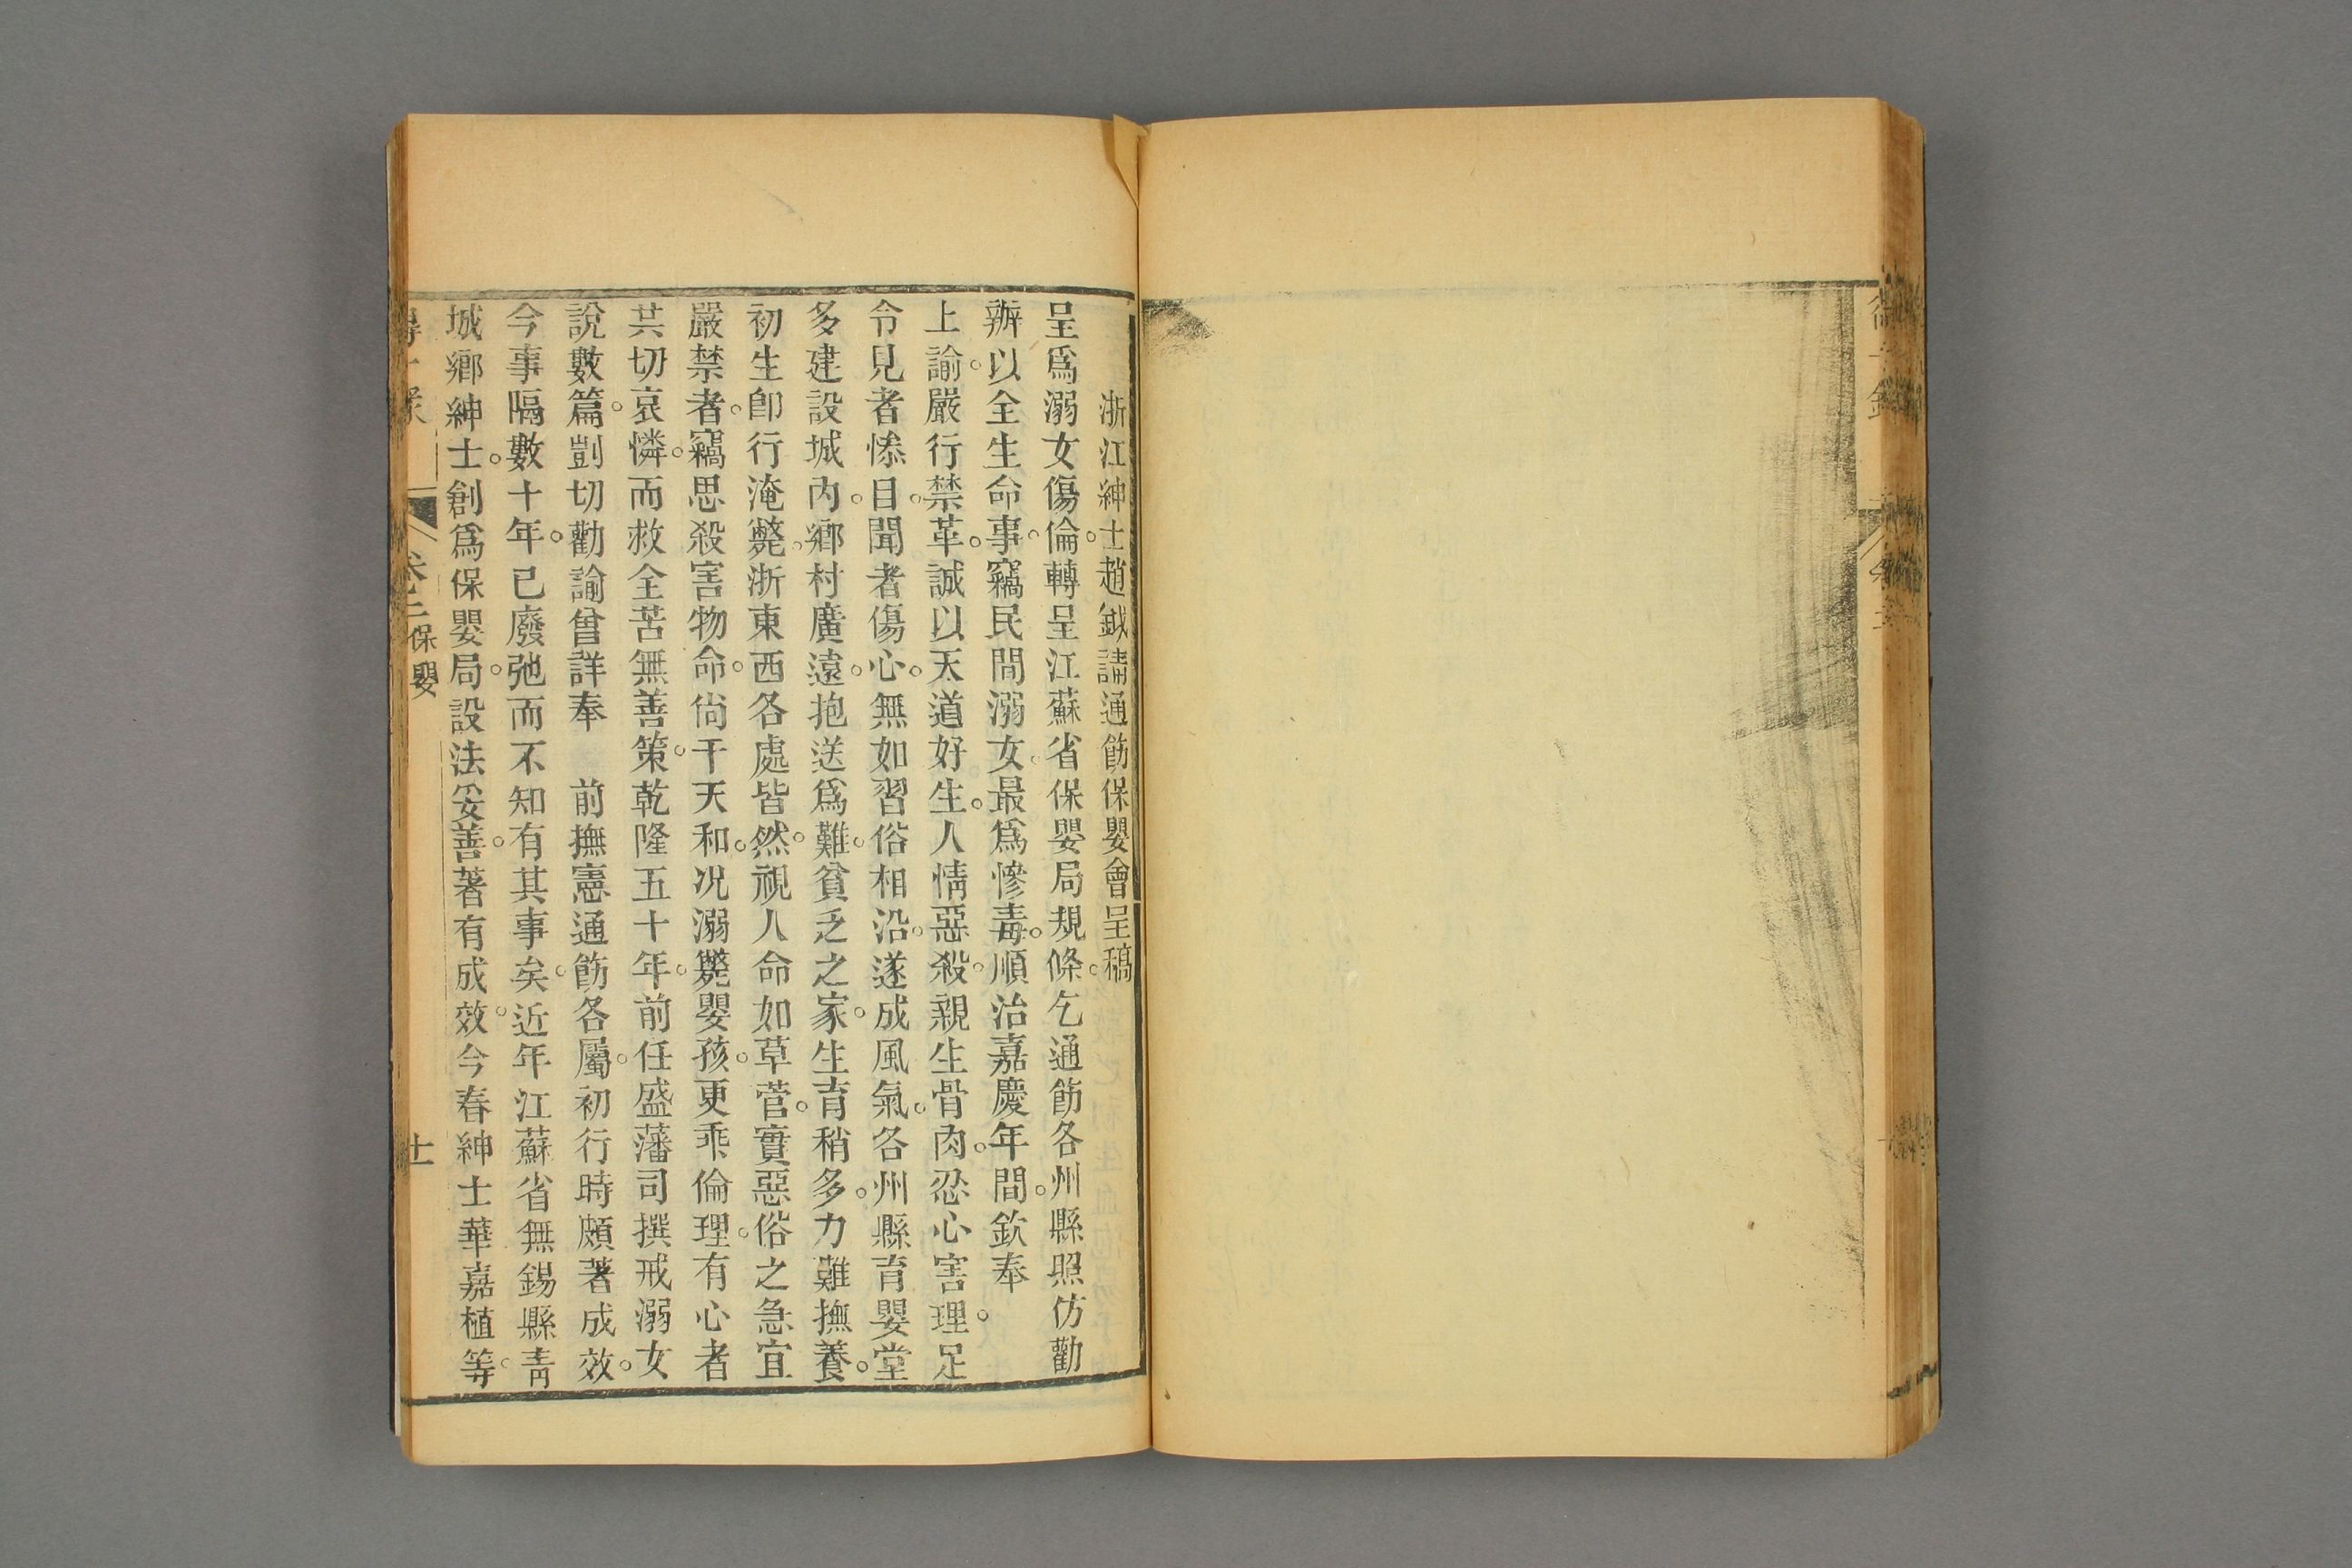 浙江紳士趙鉞請通飭保嬰會呈稿
呈爲溺女傷倫。轉呈江蘇省保嬰局規條。乞通飭各州縣照仿勸
辦。以全生命事。竊民間溺女。最爲慘毒。順治嘉慶年間。欽奉
上諭。嚴行禁革。誠以天道好生。人情惡殺。親生骨肉。忍心害理。足
令見者慘目。聞者傷心。無如習俗相沿。遂成風氣。各州縣育嬰堂
多建設城內。鄉村廣遠。抱送爲難。貧乏之家。生育稍多。力難撫養。
初生卽行淹斃。浙東西各處皆然。視人命如草菅。實惡俗之急宜
嚴禁者。竊思殺害物命。尙干天和。况溺斃嬰孩。更乖倫理。有心者
共切哀憐。而救全苦無善策。乾隆五十年。前任盛藩司撰戒溺女
說數篇。剴切勸諭曾詳奉　前撫憲通飭各屬。初行時頗著成效。
今事隔數十年。已廢弛而不知有其事矣。近年江蘇省無錫縣靑
城鄉紳士。創爲保嬰局。設法妥善。著有成效。今春紳士華嘉植等。
得一录　卷之二保嬰　十一